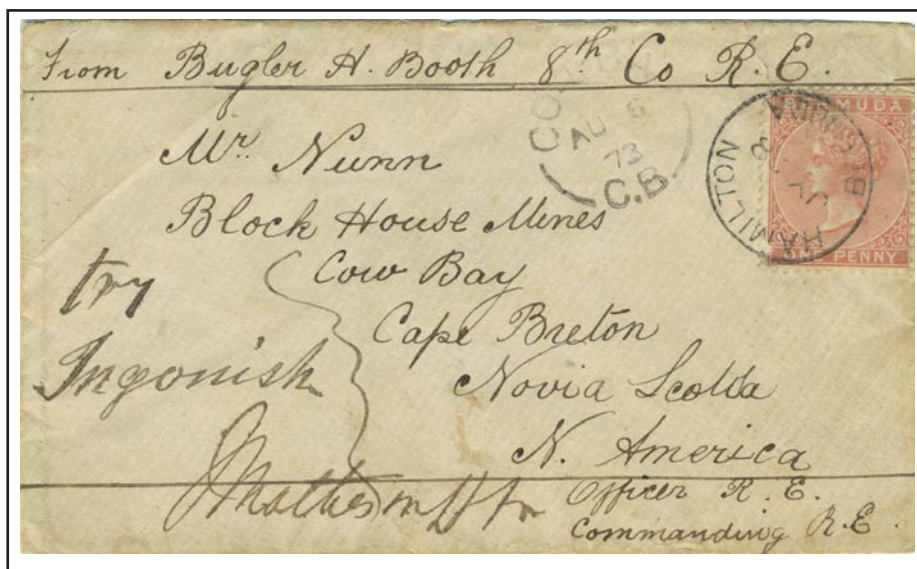 From Bugler H. Booth 8th Co R.E.
BERMUDA
ONE PENNY
HAMILTON
BERMUDA
AU 6
73
C.B
Mr. Nunn
Block House Mines
Cow Bay
Cape Breton
Novia Scotia
N. America
try
Ingonish
Officer R.E.
Commanding R.E.